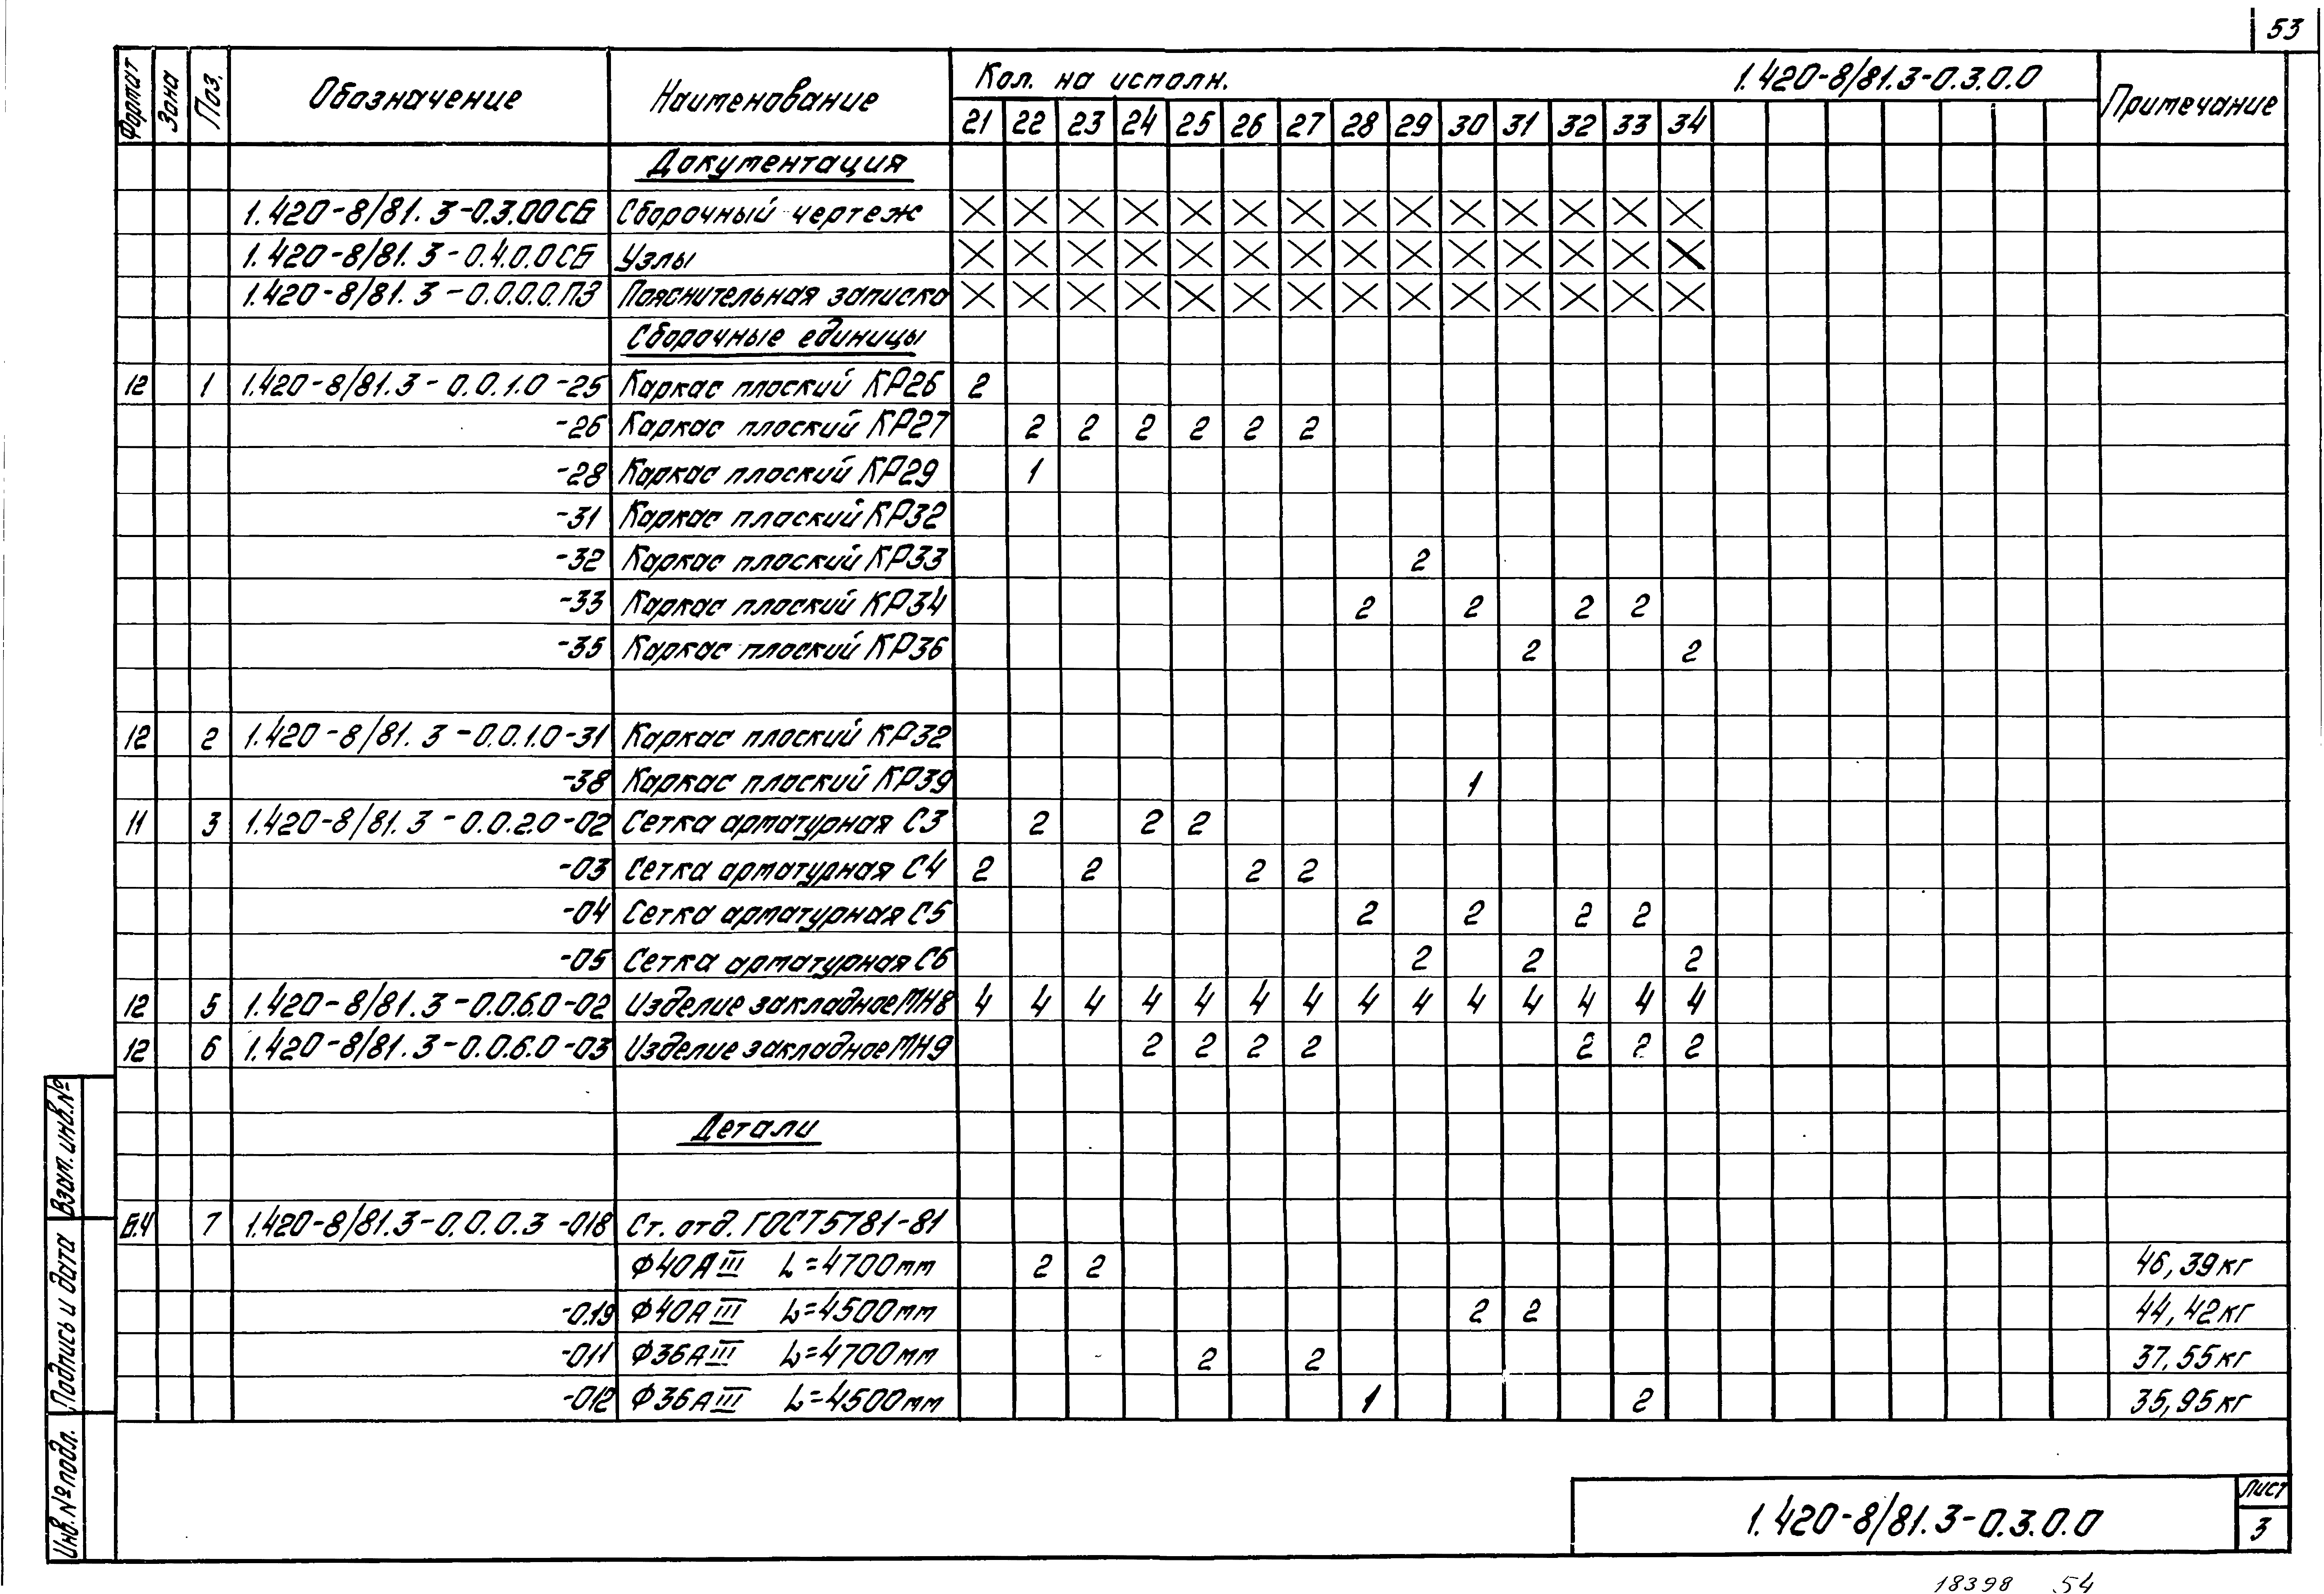 53
Формат Зона Поз. Обозначение Наименование Кол. на исполн. 1.420-8/81.3-0.3.0.0 Примечание
21 22 23 24 25 26 27 28 29 30 31 32 33 34
Документация
1.420-8/81.3-0.3.00СБ Сборочный чертеж X X X X X X X X X X X X X X
1.420-8/81.3-0.4.0.0СБ Узлы X X X X X X X X X X X X X
1.420-8/81.3-0.0.0.0.ПЗ Пояснительная записка X X X X X X X X X X X X X X
Сборочные единицы
12 1 1.420-8/81.3-0.0.1.0-25 Каркас плоский КР26 2
-26 Каркас плоский КР27 2 2 2 2 2 2
-28 Каркас плоский КР29 1
-31 Каркас плоский КР32
-32 Каркас плоский КР33 2
-33 Каркас плоский КР34 2 2 2 2
-35 Каркас плоский КР36 2 2
12 2 1.420-8/81.3-0.0.1.0-31 Каркас плоский КР32
-38 Каркас плоский КР39 1
11 3 1.420-8/81.3-0.0.2.0-02 Сетка арматурная С3 2 2 2
-03 Сетка арматурная С4 2 2 2 2
-04 Сетка арматурная С5 2 2 2 2
-05 Сетка арматурная С6 2 2 2
12 5 1.420-8/81.3-0.0.6.0-02 Изделие закладное МН8 4 4 4 4 4 4 4 4 4 4 4 4 4 4
12 6 1.420-8/81.3-0.0.6.0-03 Изделие закладное МН9 2 2 2 2 2 2 2
Детали
Б.Ч 7 1.420-8/81.3-0.0.0.3-018 Ст. отд. ГОСТ5781-81
Ф40АIII L=4700мм 2 2 46,39кг
-019 Ф40АIII L=4500мм 2 2 44,42кг
-011 Ф36АIII L=4700мм 2 2 37,55кг
-012 Ф36АIII L=4500мм 1 2 35,95кг
Взам. инв.№
Подпись и дата
Инв.№ подл.
1.420-8/81.3-0.3.0.0
Лист
3
18398 54